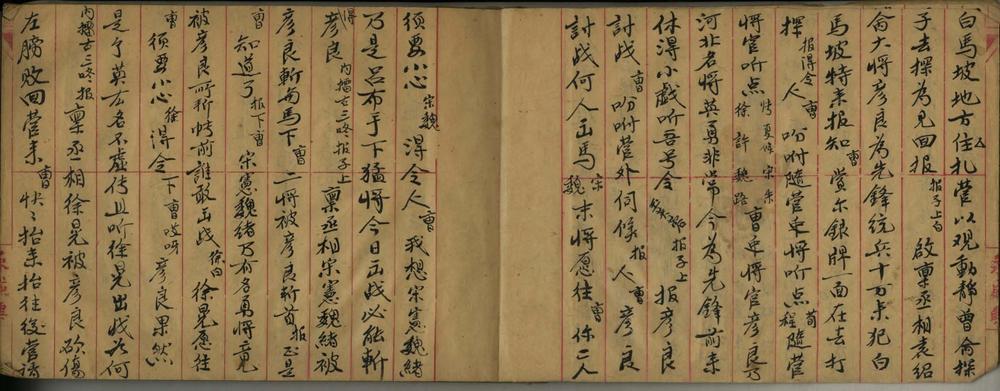 白馬坡地方住扎營以观動靜曹侖探
子去探为见回报 报子上白 啟稟丞相袁绍
侖大将彦良為先鋒統兵十万来犯白
馬坡特来报知 曹 赏尔銀牌一面在去打
探 报得令人 曹 吩咐隨营束将听点 荀程 隨营
将官听点 夏侯 宋朱 徐許 魏路 曹 束将官彦良乃
河北名将英勇非常今為先鋒前来
休得小戲听吾号令 报子上 报彦良
討战 曹 吩咐营外伺候 报人 曹 彦良
討战何人出馬 宋魏 末将愿往 曹 你二人
须要小心 宋魏 得令人 曹 我想宋憲魏緒
乃是呂布手下猛将今日出战必能斬
得彦良 内擂古三咚报子上 稟丞相宋憲魏緒被
彦良斬与馬下 曹 二将被彦良斬首 报 正是
曹 知道了 报下曹 宋憲魏緒乃有名勇将竟
被彦良所斬帐前誰敢出战 徐白 徐晃愿往
曹 须要小心 徐 得令下 曹 哎呀 彦良果然
是个英雄名不虚传且听徐晃出战如何
内擂古三咚报 稟丞相徐晃被彦良砍傷
左膀败回营来 曹 快々抬来抬往後营